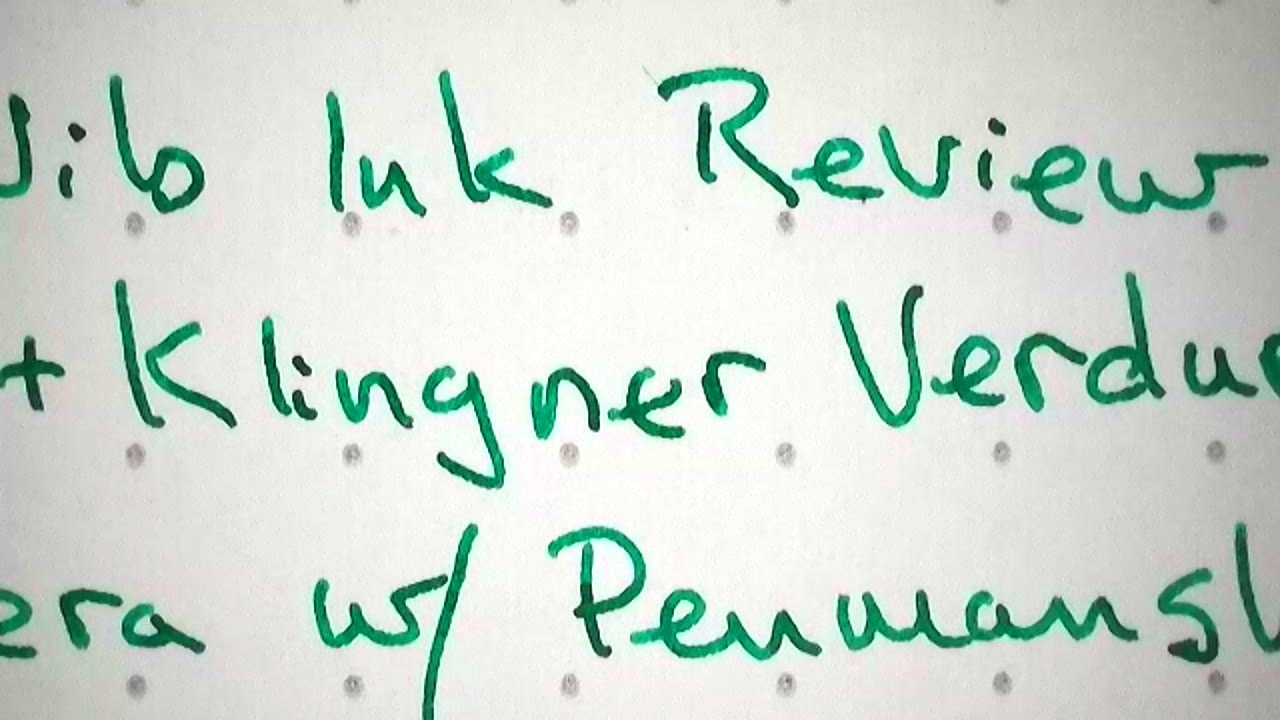 Nib Ink Review
+ Klingner Verdu
era w/ Penmansh